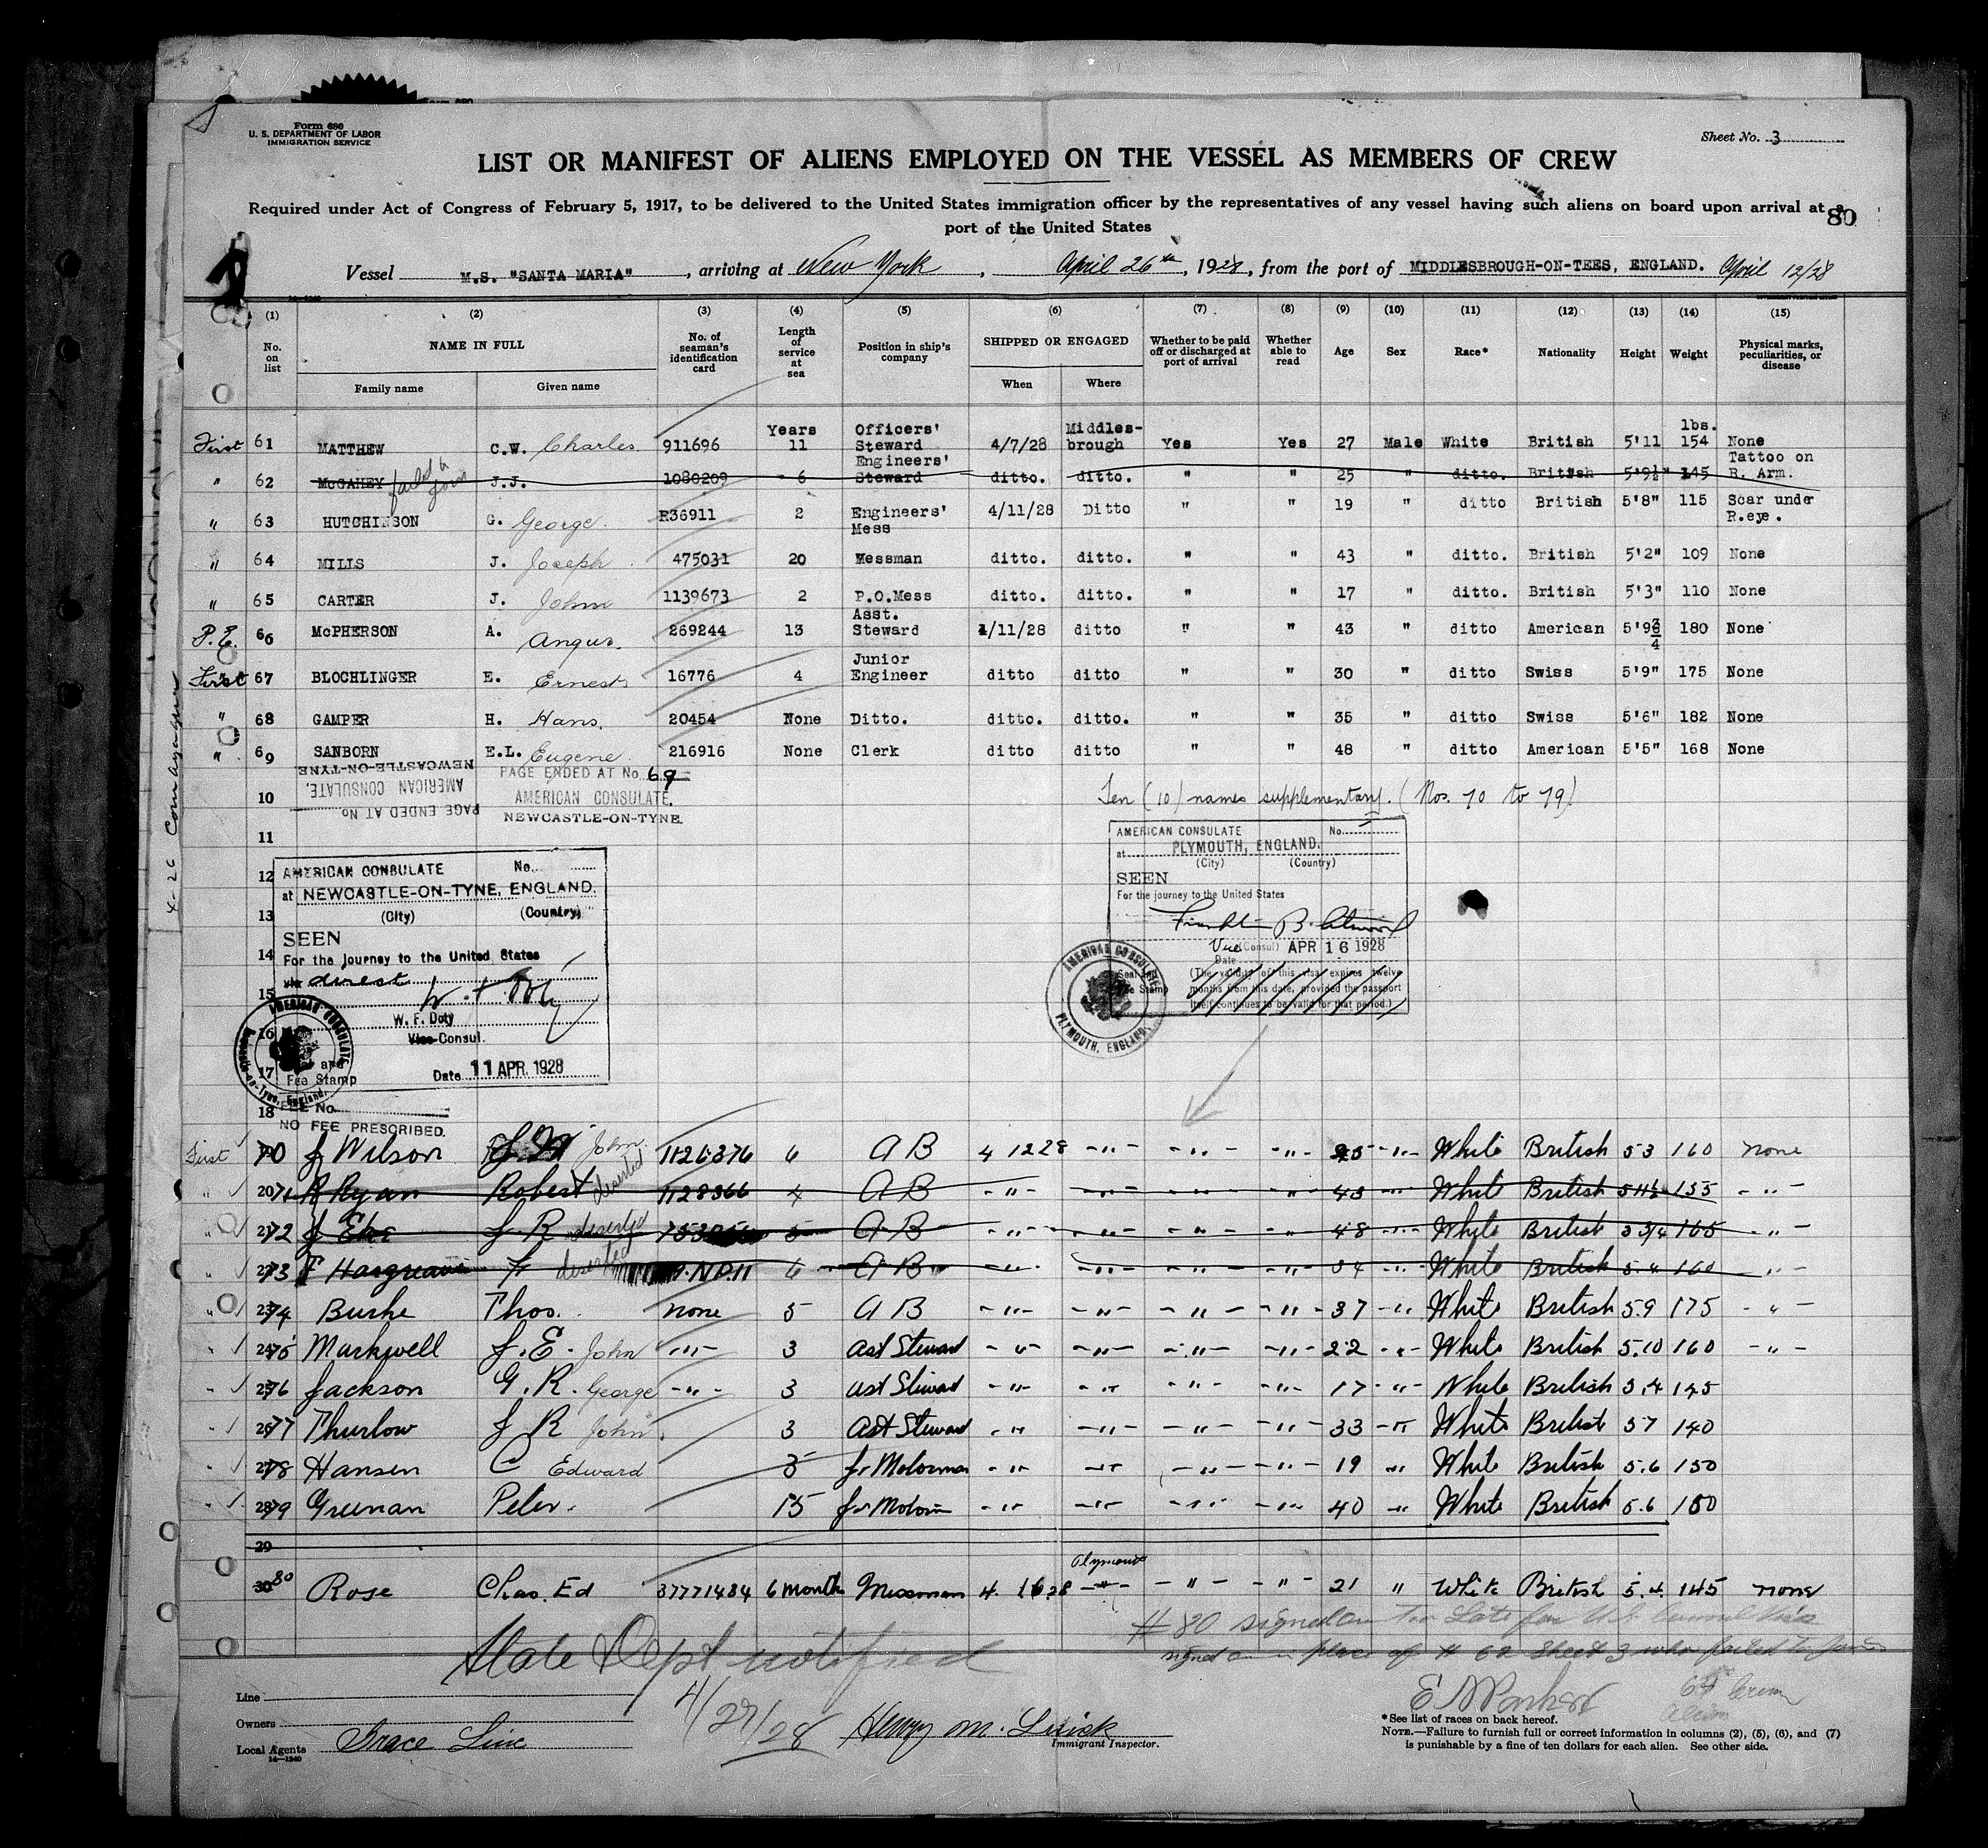 Form 680
U. S. DEPARTMENT OF LABOR
IMMIGRATION SERVICE
Sheet No. 3
LIST OR MANIFEST OF ALIENS EMPLOYED ON THE VESSEL AS MEMBERS OF CREW
Required under Act of Congress of February 5, 1917, to be delivered to the United States immigration officer by the representatives of any vessel having such aliens on board upon arrival at a
port of the United States
80
Vessel M.S. "SANTA MARIA", arriving at New York, April 26th, 1928, from the port of MIDDLESBROUGH-ON-TEES, ENGLAND. April 12/28
14-1240
(1) (2) (3) (4) (5) (6) (7) (8) (9) (10) (11) (12) (13) (14) (15)
No. on list
NAME IN FULL
Family name
Given name
No. of seaman's identification card
Length of service at sea
Position in ship's company
SHIPPED OR ENGAGED
When
Where
Whether to be paid off or discharged at port of arrival
Whether able to read
Age
Sex
Race*
Nationality
Height
Weight
Physical marks, peculiarities, or disease
Years Officers' Middles- lbs.
First 61 MATTHEW C.W. Charles 911696 11 Steward 4/7/28 brough Yes Yes 27 Male White British 5'11 154 None
Engineers' Tattoo on
" 62 McGAHEY failed to join J.J. 1080209 6 Steward ditto. ditto. " " 25 " ditto. British 5'9½" 145 R. Arm.
" 63 HUTCHINSON G. George. R36911 2 Engineers' Mess 4/11/28 Ditto " " 19 " ditto British 5'8" 115 Scar under R.eye.
" 64 MILLS J. Joseph 475031 20 Messman ditto. ditto. " " 43 " ditto. British 5'2" 109 None
" 65 CARTER J. John 1139673 2 P.O.Mess ditto. ditto. " " 17 " ditto. British 5'3" 110 None
Asst.
P.E. 66 McPHERSON A. Angus. 269244 13 Steward 4/11/28 ditto " " 43 " ditto American 5'9¾ 180 None
Junior
First 67 BLOCHLINGER E. Ernest 16776 4 Engineer ditto ditto " " 30 " ditto Swiss 5'9" 175 None
" 68 GAMPER H. Hans. 20454 None Ditto. ditto. ditto. " " 35 " ditto Swiss 5'6" 182 None
" 69 SANBORN E.L. Eugene 216916 None Clerk ditto ditto " " 48 " ditto American 5'5" 168 None
PAGE ENDED AT No. 69
AMERICAN CONSULATE.
NEWCASTLE-ON-TYNE.
PAGE ENDED AT No
AMERICAN CONSULATE.
NEWCASTLE-ON-TYNE
10
11
12
13
14
15
16
17
18
Ten (10) names supplementary. (Nos. 70 to 79)
AMERICAN CONSULATE No.
at NEWCASTLE-ON-TYNE, ENGLAND.
(City) (Country)
SEEN
For the journey to the United States
via direct
W. F. Doty
Vice Consul.
Fee Stamp
Date 11 APR. 1928
AMERICAN CONSULATE
Newcastle-on-Tyne, England.
FEE No.
NO FEE PRESCRIBED.
AMERICAN CONSULATE No.
at PLYMOUTH, ENGLAND.
(City) (Country)
SEEN
For the journey to the United States
Vice (Consul)
Date APR 16 1928
(The validity of this visa expires twelve
months from this date, provided the passport
itself continues to be valid for that period.)
AMERICAN CONSULATE
PLYMOUTH, ENGLAND.
First 70 J Wilson John 1126376 6 AB 4 12 28 -"- -"- -"- -"- White British 5 3 160 none
" 71 R Ryan Robert deserted 1128366 4 AB -"- -"- -"- -"- 43 -"- White British 5 11½ 155 -"-
" 72 J R deserted 5 AB -"- -"- -"- -"- 48 -"- White British 165 -"-
" 73 F Hargreaves deserted 6 AB -"- -"- -"- -"- 34 -"- White British 5.4 160 -"-
" 74 Burke Thos. none 5 AB -"- -"- -"- -"- 37 -"- White British 5 9 175 -"-
" 75 Markwell J.E. John -"- 3 Ast Steward -"- -"- -"- -"- 22 -"- White British 5.10 160 -"-
" 76 Jackson G.R. George -"- 3 Ast Steward -"- -"- -"- -"- 17 -"- White British 5.4 145
" 77 Thurlow J R John 3 Ast Steward -"- -"- -"- -"- 33 -"- White British 5 7 140
" 78 Hansen C Edward 3 Jr Motorman -"- -"- -"- -"- 19 " White British 5.6 150
" 79 Greenan Peter. 15 Jr Motorm -"- -"- -"- -"- 40 -"- White British 5.6 150
29
Plymouth
30 80 Rose Chas. Ed 37771484 6 month Messman 4. 16.28 -"- -"- -"- 21 " White British 5.4. 145 none
#80 signed on Too Late for U.S. Consul Visa
signed on in place of #62 Sheet 3 who failed to join
State Dept notified
4/27/28
Line
Owners
Local Agents Grace Line
14-1240
Immigrant Inspector.
*See list of races on back hereof.
NOTE.—Failure to furnish full or correct information in columns (2), (5), (6), and (7)
is punishable by a fine of ten dollars for each alien. See other side.